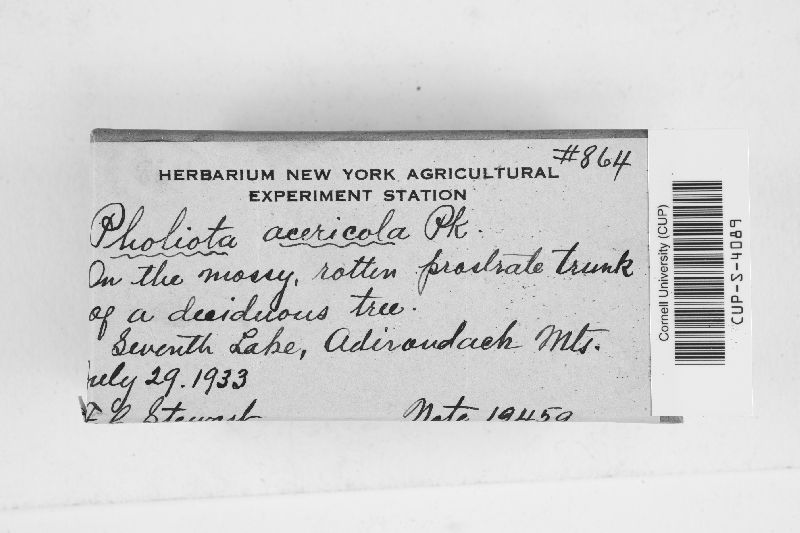 #864
HERBARIUM NEW YORK AGRICULTURAL
EXPERIMENT STATION
Pholiota acericola Pk.
On the mossy, rotten prostrate trunk
of a deciduous tree.
Seventh Lake, Adirondack Mts.
July 29. 1933
F. C. Stewart Note 19459
Cornell University (CUP)
CUP-S-4089